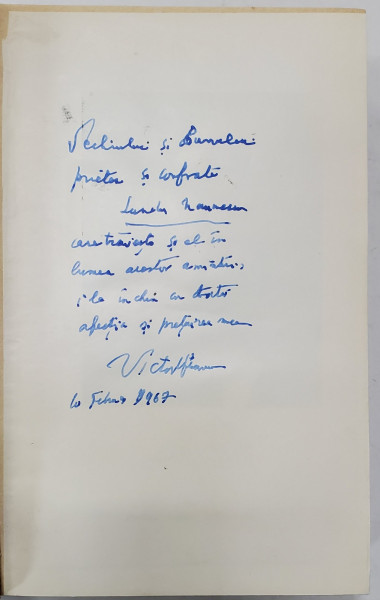 Vechiului și bunului
prieten și confrate
care trăiește și el în
lumea acestor amintiri,
i le închin cu toată
afecția și prețuirea mea
Victor
10 Febr 1967